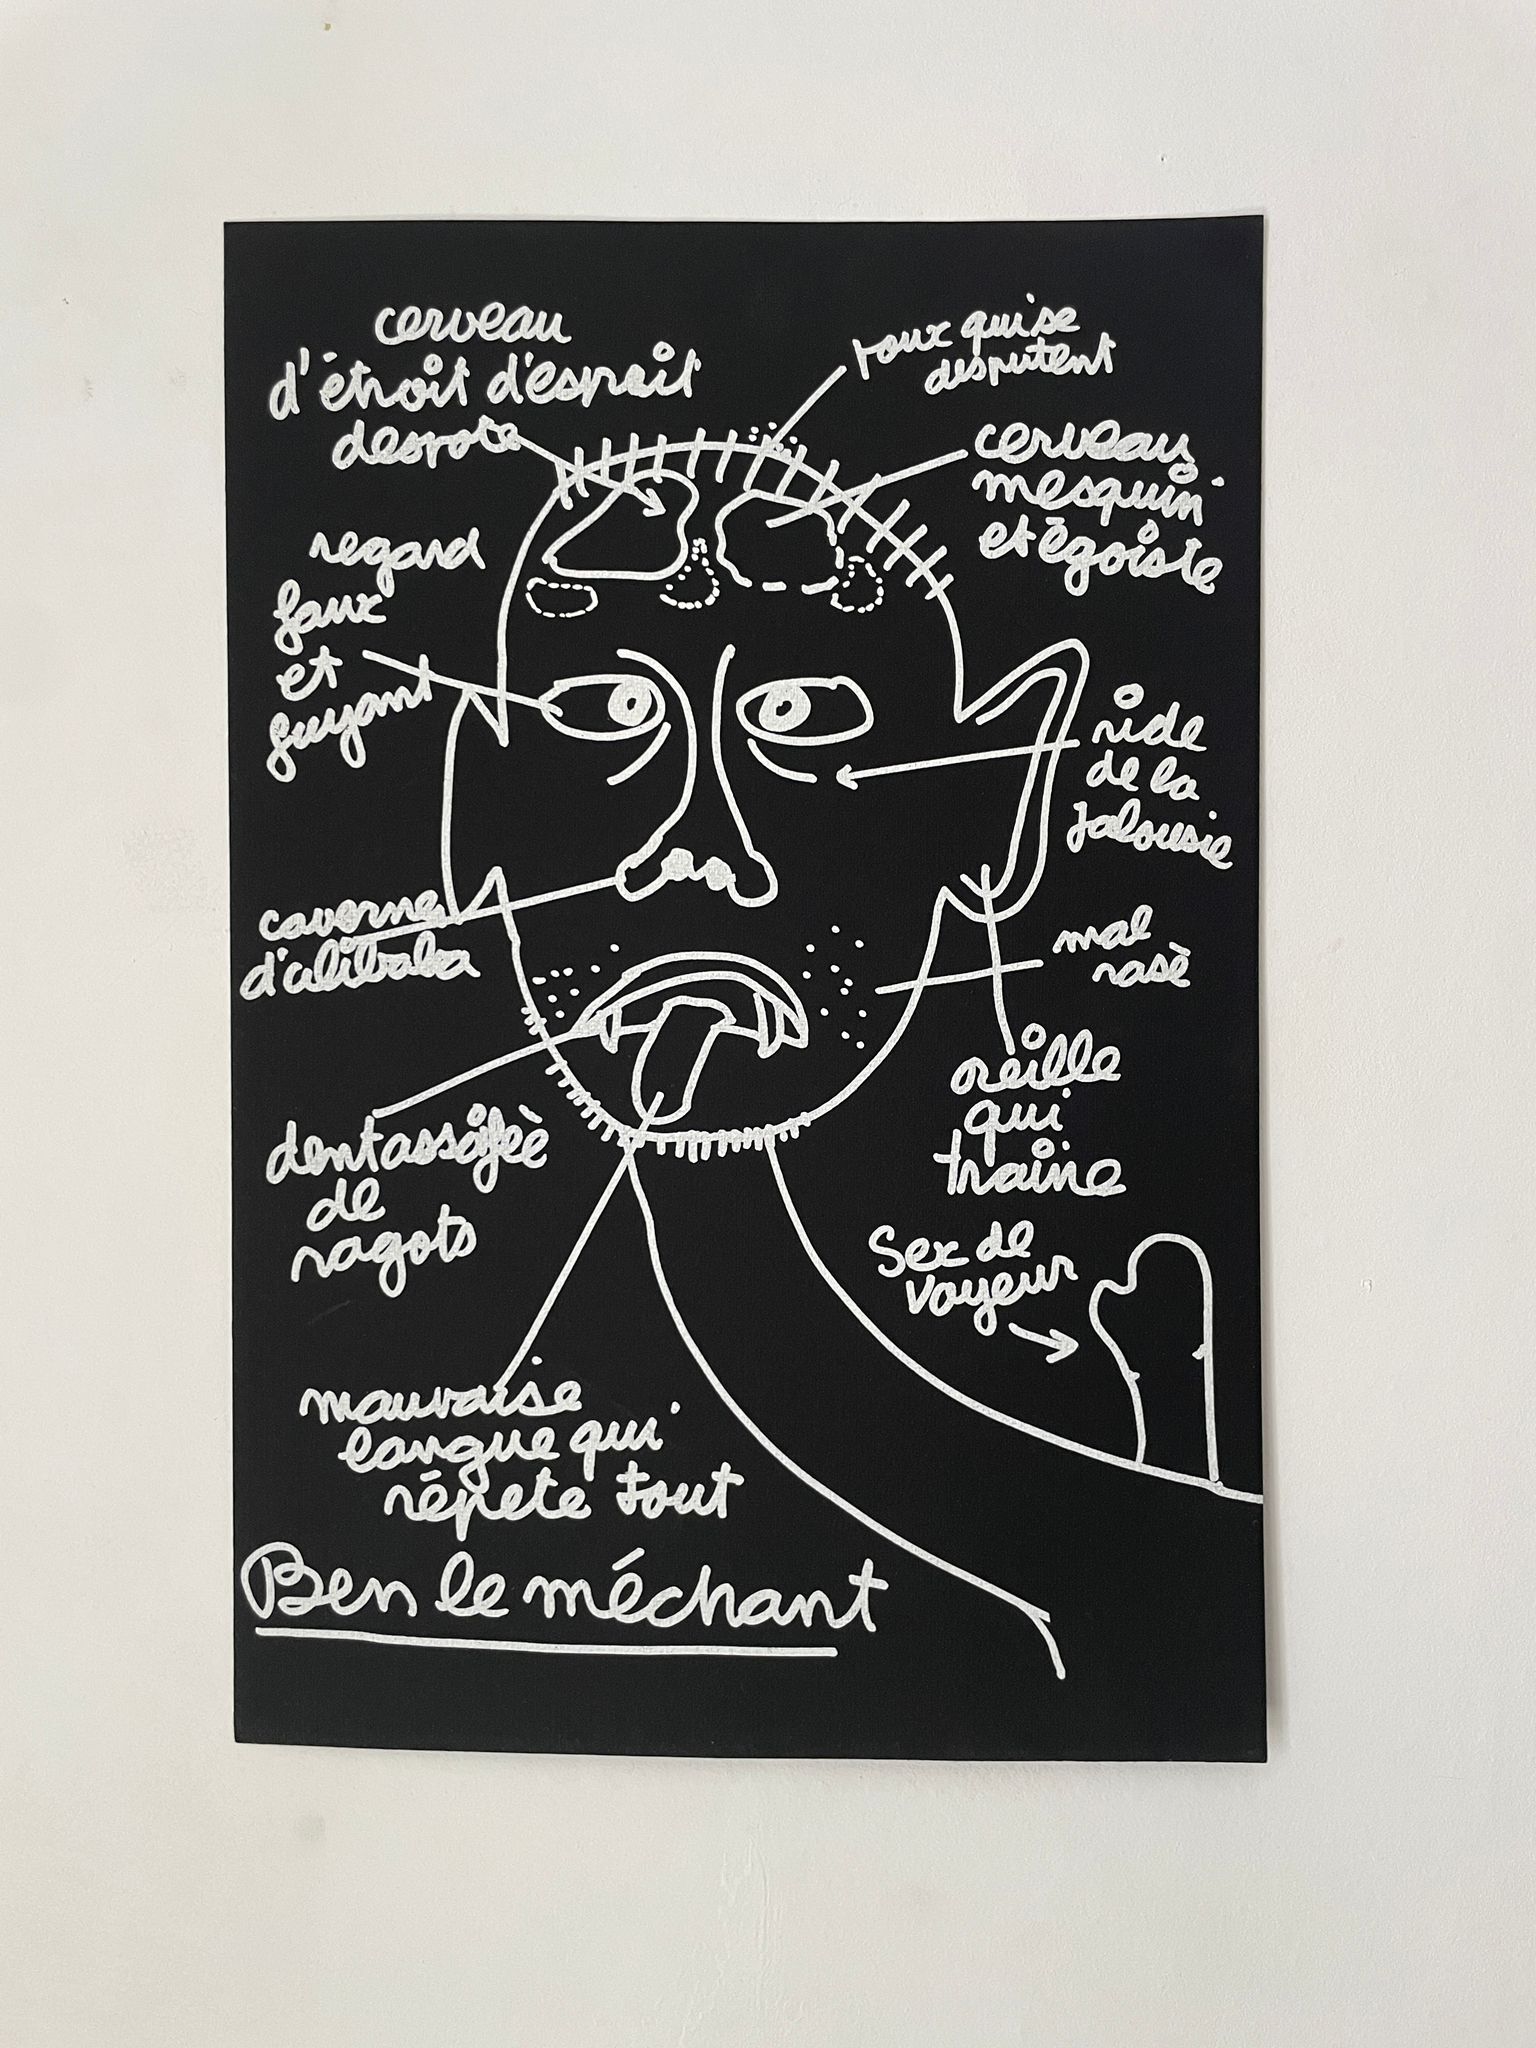 cerveau
d'étroit d'esprit
despote
poux qui se
disputent
cerveau
mesquin
et égoiste
regard
faux
et
fuyant
ride
de la
jalousie
caverne
d'alibaba
mal
rasè
oreille
qui
traine
dent assoifeè
de
ragots
Sex de
voyeur
mauvaise
langue qui
répete tout
Ben le méchant